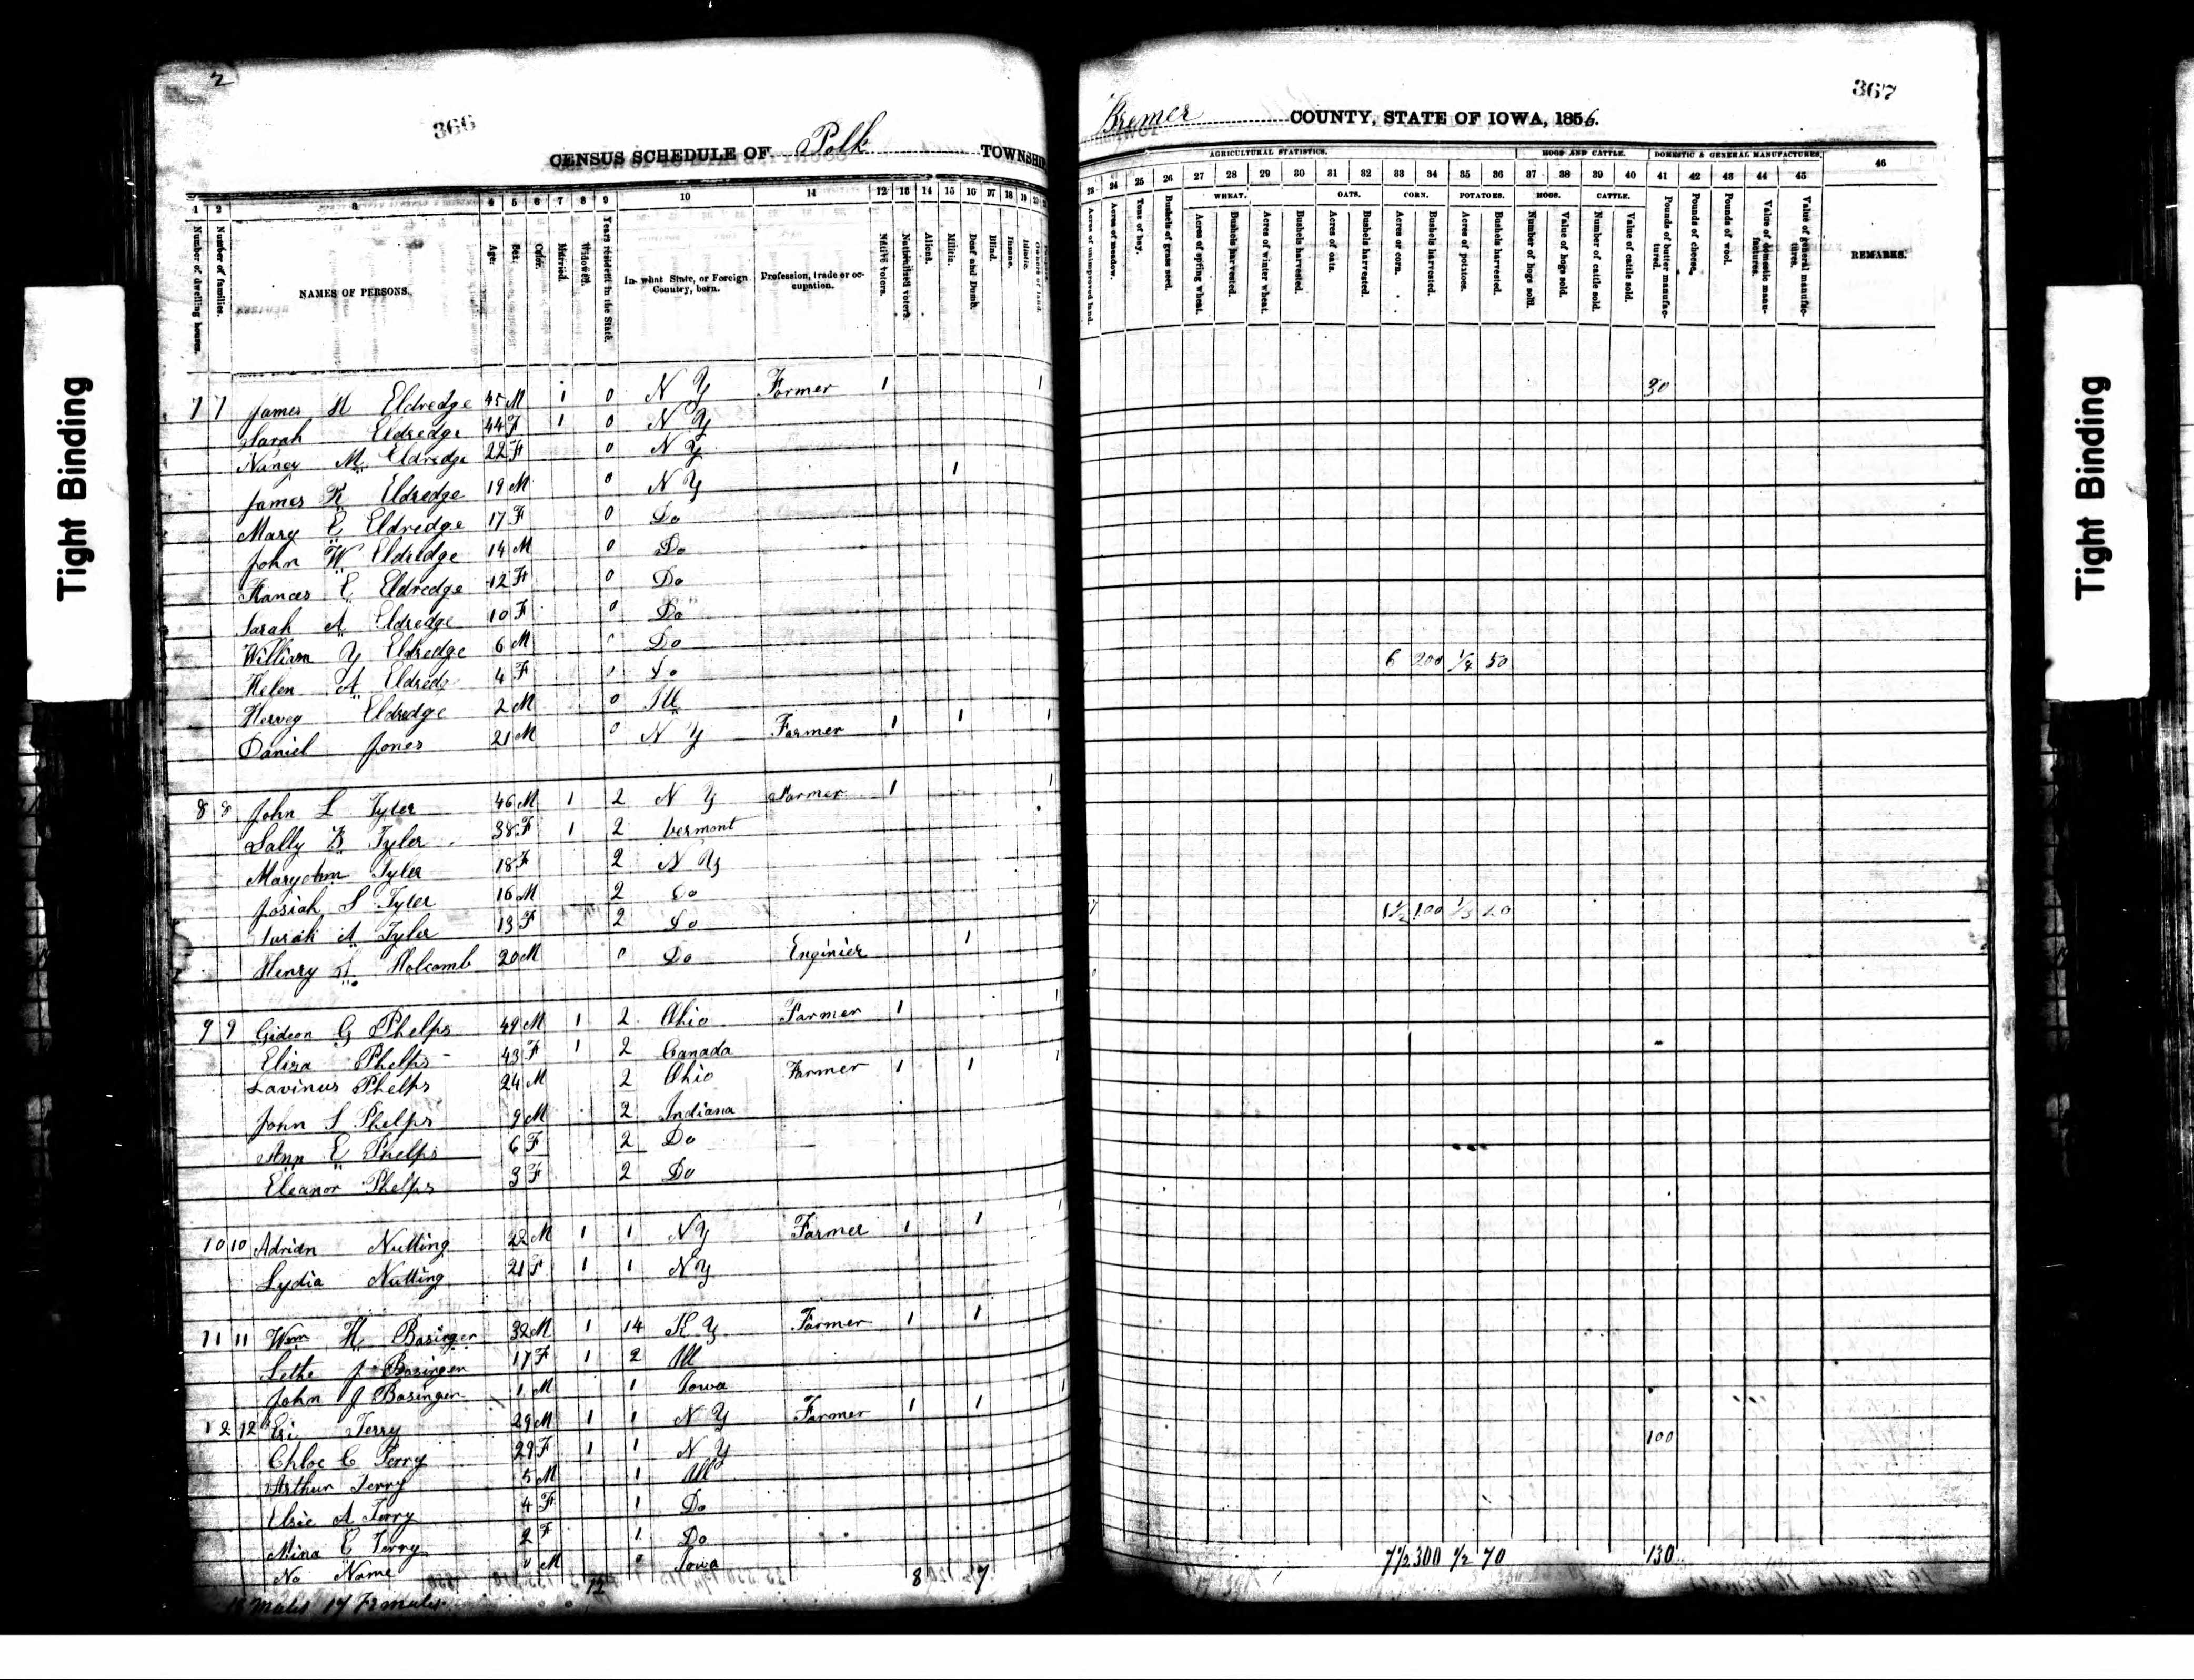 2
366
CENSUS SCHEDULE OF Polk TOWNSHIP
1 2 3 4 5 6 7 8 9 10 11 12 13 14 15 16 17 18 19
Number of dwelling houses.
Number of families.
NAMES OF PERSONS.
Age.
Sex.
Color.
Married.
Widowed.
Years resident in the State.
In what State, or Foreign Country, born.
Profession, trade or occupation.
Native voters.
Naturalized voters.
Aliens.
Militia.
Deaf and Dumb.
Blind.
Insane.
Idiotic.
Owners of land.
7 7 James H Eldredge 45 M 1 0 N Y Farmer 1 1
Sarah Eldredge 44 F 1 0 N Y
Nancy M Eldredge 22 F 0 N Y
James K Eldredge 19 M 0 N Y 1
Mary E Eldredge 17 F 0 Do
John W Eldredge 14 M 0 Do
Frances E Eldredge 12 F 0 Do
Sarah A Eldredge 10 F 0 Do
William Y Eldredge 6 M 0 Do
Helen A Eldredg 4 F Do
Hervey Eldredge 2 M 0 Ill
Daniel Jones 21 M 0 N Y Farmer 1 1 1
8 8 John L Tyler 46 M 1 2 N Y Farmer 1 1
Sally B Tyler 38 F 1 2 Vermont
Maryann Tyler 18 F 2 N Y
Josiah S Tyler 16 M 2 Do
Sarah A Tyler 13 F 2 Do
Henry Holcomb 20 M 0 Do Enginier 1
9 9 Gideon G Phelps 49 M 1 2 Ohio Farmer 1 1
Eliza Phelps 43 F 1 2 Canada
Lavinus Phelps 24 M 2 Ohio Farmer 1 1 1
John S Phelps 9 M 2 Indiana
Ann E Phelps 6 F 2 Do
Eleanor Phelps 3 F 2 Do
10 10 Adrian Nutting 22 M 1 1 N Y Farmer 1 1 1
Lydia Nutting 21 F 1 1 N Y
11 11 Wm H Basinger 32 M 1 14 K Y Farmer 1 1
Lethe J Basinger 17 F 1 2 Ill
John J Basinger 1 M 1 Iowa
12 12 Eri Terry 29 M 1 1 N Y Farmer 1 1 1
Chloe C Terry 29 F 1 1 N Y
Arthur Terry 5 M 1 Ill
Elsie A Terry 4 F 1 Do
Mina E Terry 2 F 1 Do
No Name 0 M 0 Iowa
12 8 7
Males 17 Females
367
Bremer COUNTY, STATE OF IOWA, 1856.
AGRICULTURAL STATISTICS.
HOGS AND CATTLE.
DOMESTIC & GENERAL MANUFACTURES.
23 24 25 26 27 28 29 30 31 32 33 34 35 36 37 38 39 40 41 42 43 44 45 46
WHEAT. OATS. CORN. POTATOES. HOGS. CATTLE.
Acres of unimproved land.
Acres of meadow.
Tons of hay.
Bushels of grass seed.
Acres of spring wheat.
Bushels harvested.
Acres of winter wheat.
Bushels harvested.
Acres of oats.
Bushels harvested.
Acres of corn.
Bushels harvested.
Acres of potatoes.
Bushels harvested.
Number of hogs sold.
Value of hogs sold.
Number of cattle sold.
Value of cattle sold.
Pounds of butter manufactured.
Pounds of cheese.
Pounds of wool.
Value of domestic manufactures.
Value of general manufactures.
REMARKS.
30
6 200 1/4 50
1 1/2 100 20
100
7 1/2 300 1/2 70 130
Tight Binding
Tight Binding